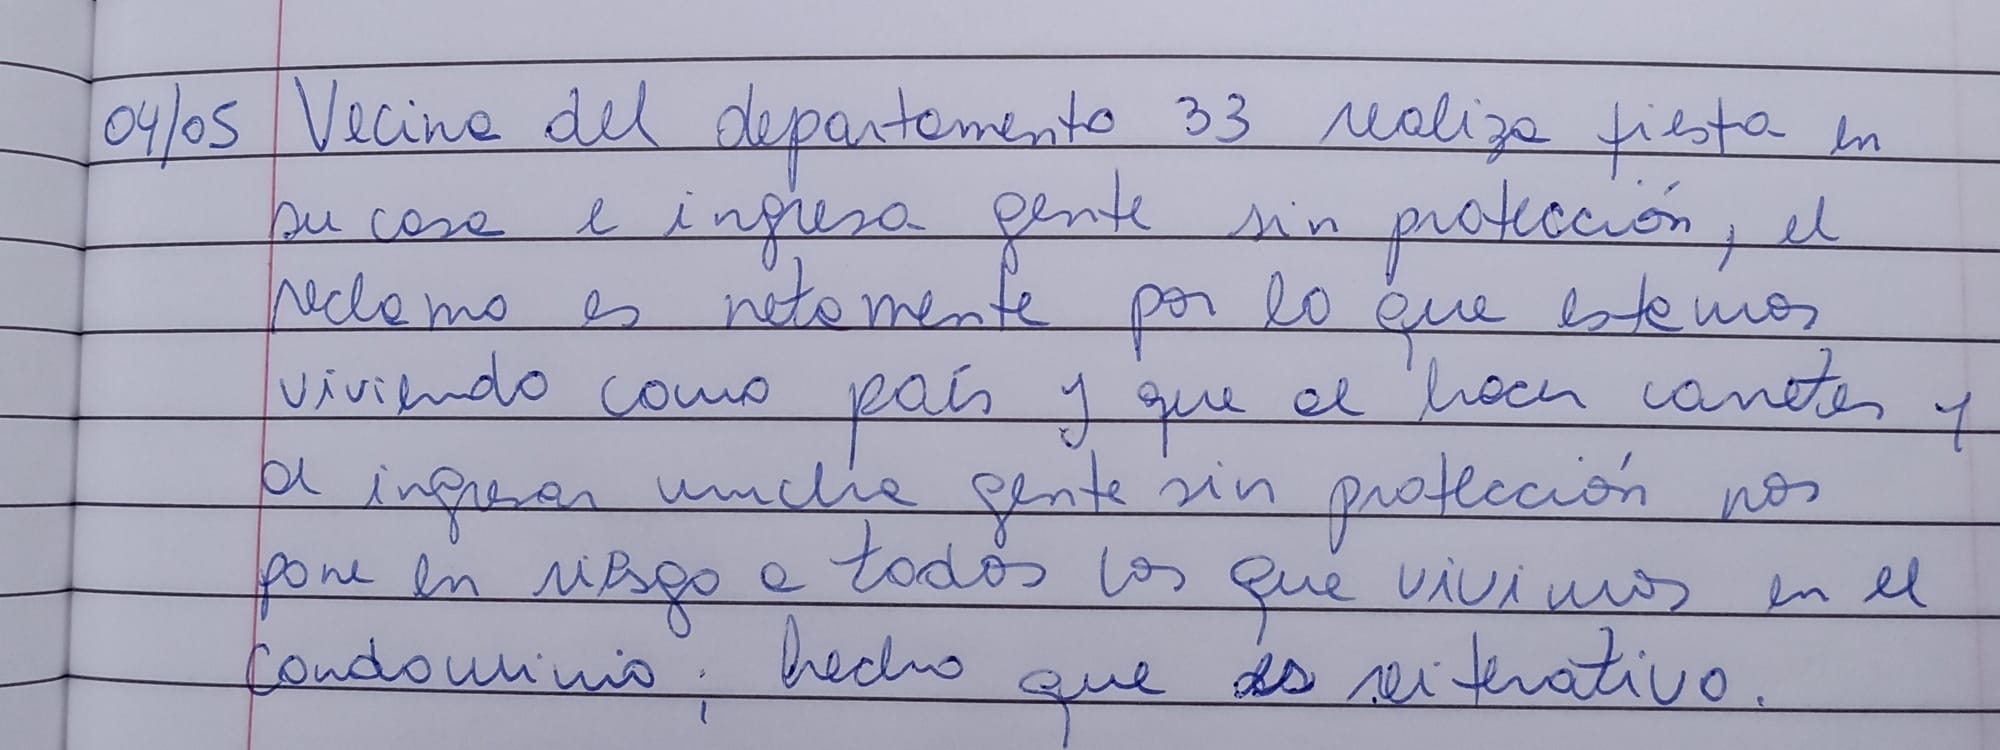 04/05 Vecina del departamento 33 realiza fiesta en
su casa e ingresa gente sin protección, el
reclamo es netamente por lo que estamos
viviendo como país y que al hacer carretes y
al ingresar mucha gente sin protección nos
pone en riesgo a todos los que vivimos en el
condominio; hecho que es reiterativo.